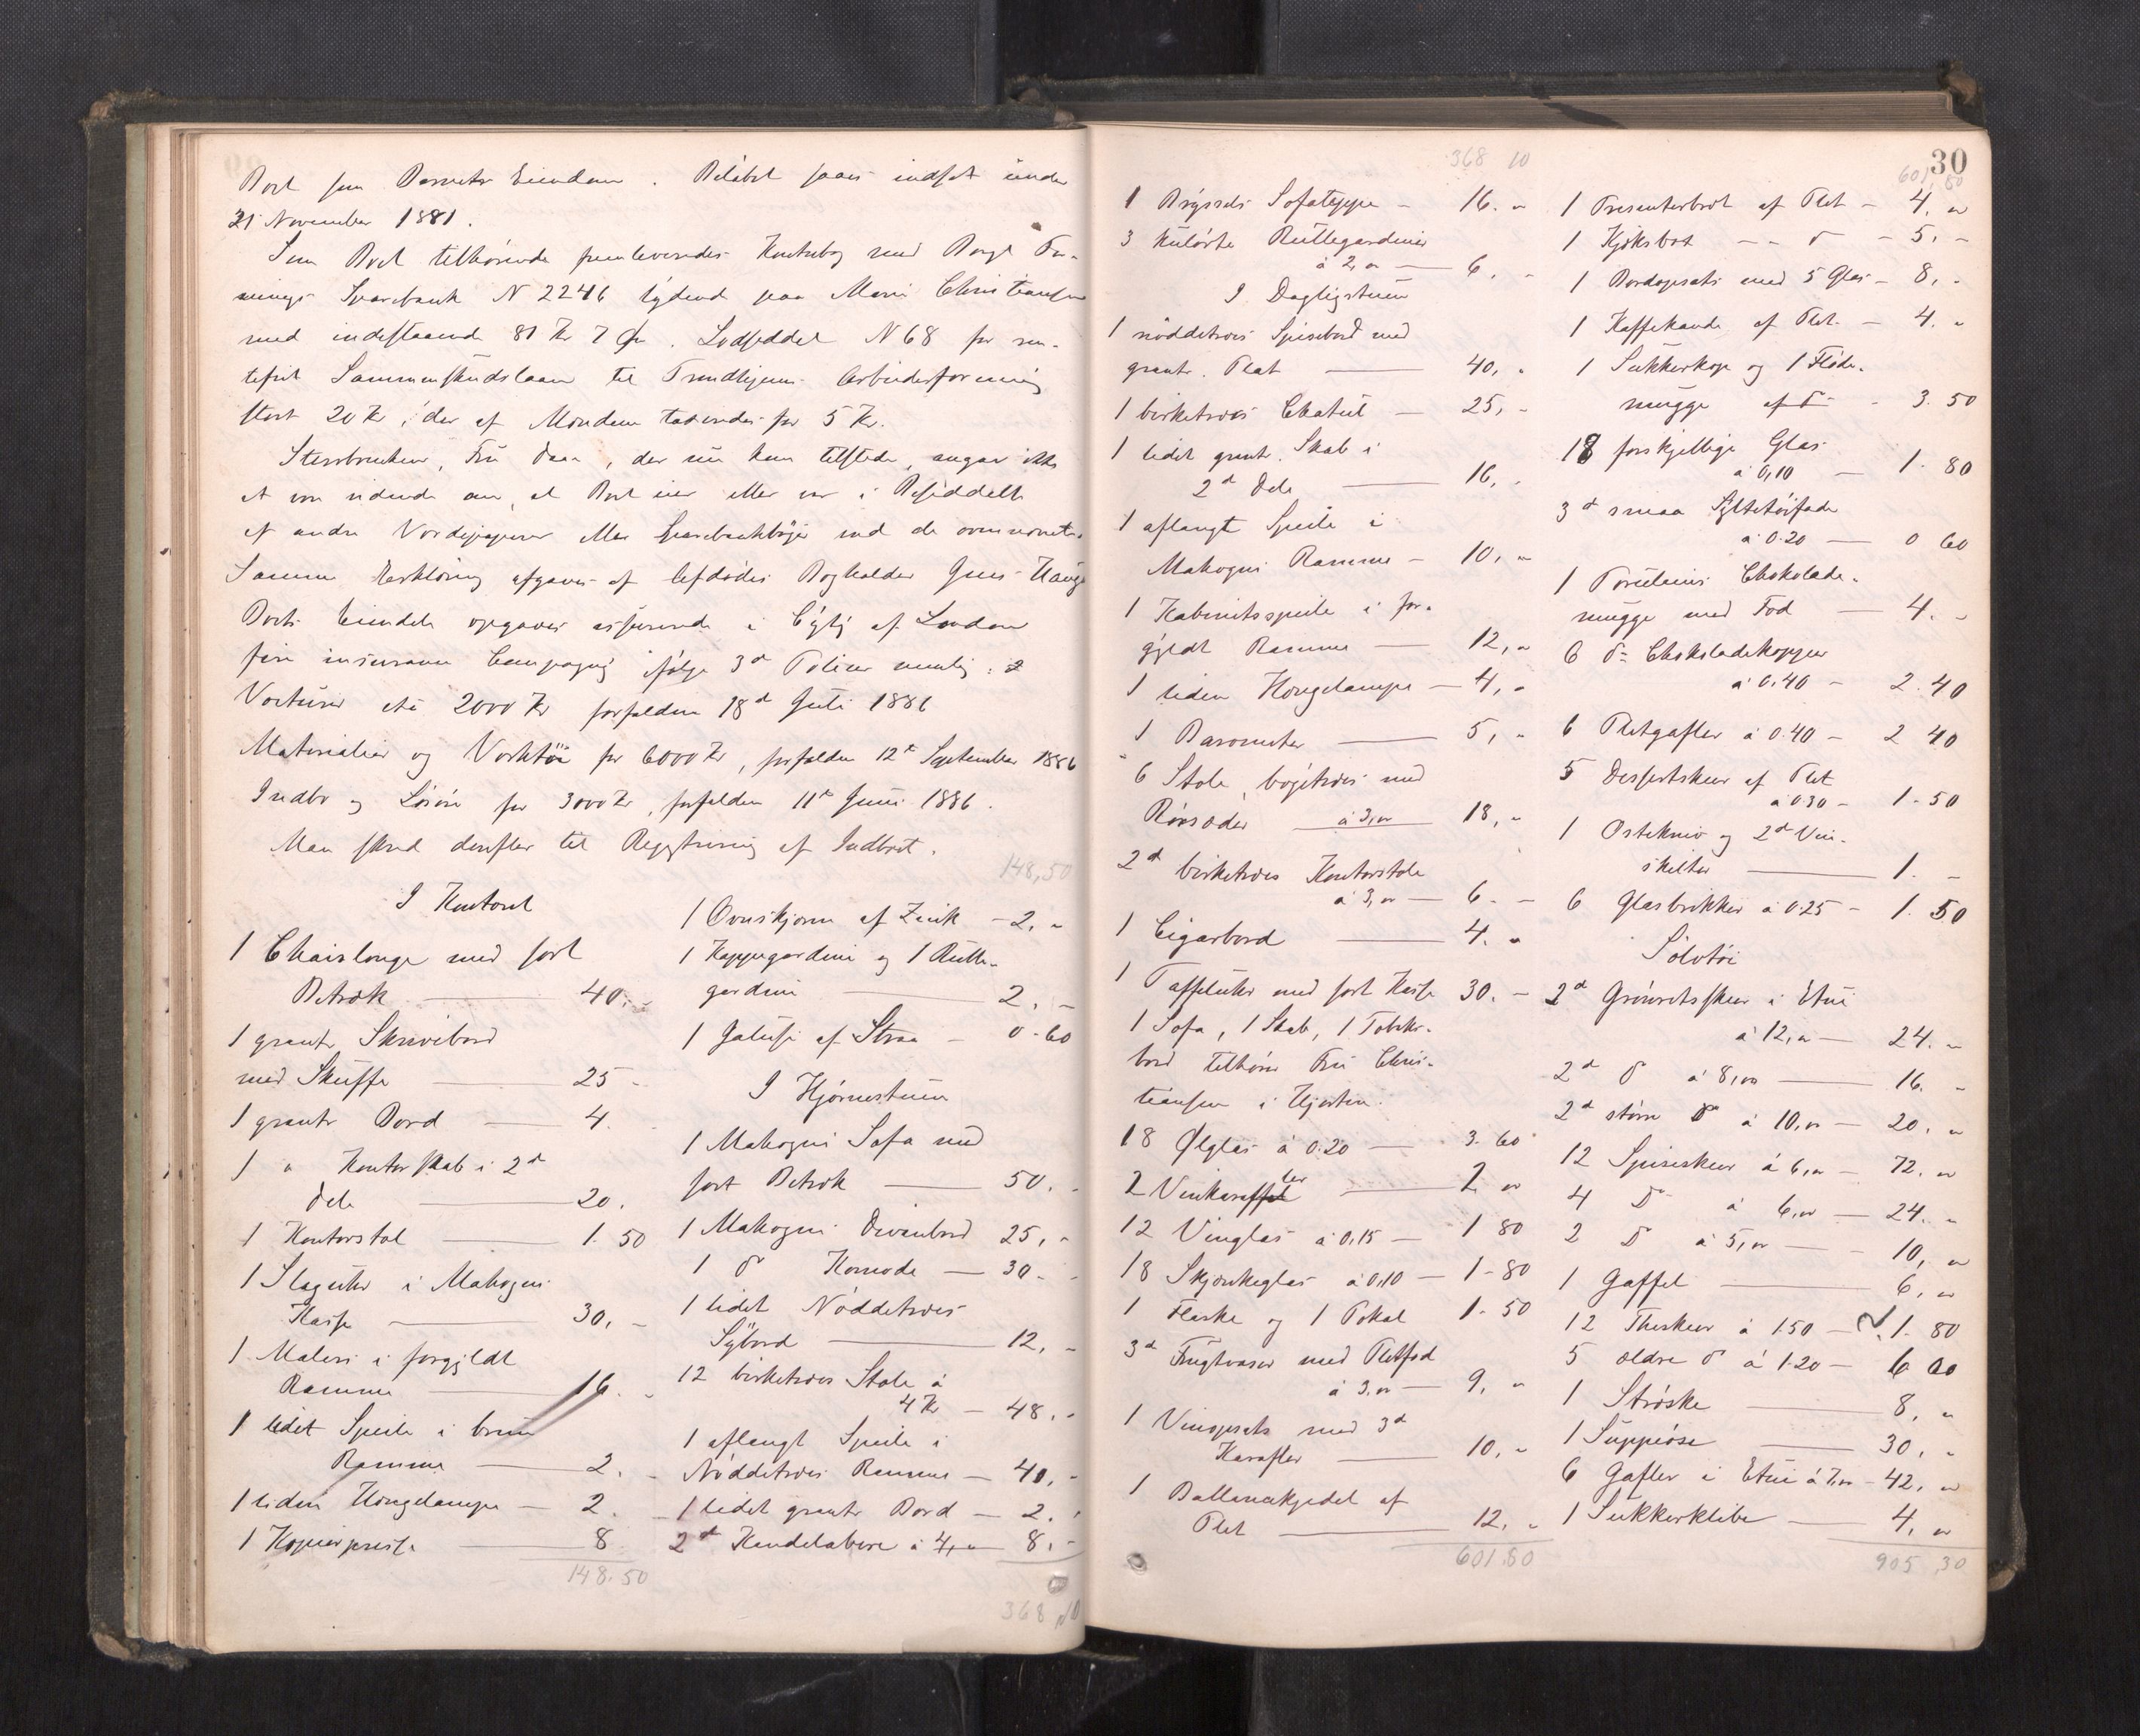 Boet som Barnets Eiendom. Beløbet saaes indsat under
21 November 1881.
Som Boet tilhørende fremleveredes Kontrabog med
Sparebank N 2246 lydende paa Marie Christiansen
med indestaaende 81 Kr 7 Øre. Lodseddel N 68 for ren-
tefrit Sammenskudslaan til Trondhjems Arbeiderforening
stort 20 Kr, der af Mændene taxeredes for 5 Kr.
Stervboenken, Fru Daae, der nu kom tilstede, angav ikke
at være vidende om, at Boet eier eller var i Besiddelse
af andre Værdipapirer eller Sparebankbøger end de ovennævnte.
Samme Erklæring afgaves af Afdødes Bogholder
Boets Eiendele opgaves assurerede i City of London
fire insurance Compagny ifølge 3de Policer nemlig: 2
2000 Kr forfalden 18d Juli 1886
Materialier og Værktøi for 6000 Kr, forfalden 12te September 1886
Indbo og Løsøre for 3000 Kr, forfalden 11te Juni 1886.
Man skred derefter til Registrering af Indboet.
I Kontoret
1 Chaislonge med sort
Betræk 40. -
1 grantr Skrivebord
med Skuffe 25 -
1 grantr Bord 4.
1 " Kontorskab i 2de
Dele 20.
1 Kontorstol 1. 50
1 Slaguhr i Mahogni
Kasse 30, -
1 Maleri i forgyldt
Ramme 16. -
1 lidet Speile i brun
Ramme 2. -
1 liden Hængelampe 2.
1 Kopierpresse 8
148.50
148,50
1 Ovnskjerm af Zink - 2. "
1 Kappegardin og 1 Rulle-
gardin 2. -
1 Galusi af Straa - 0-60
I Hjørnestuen
1 Mahogni Sofa med
sort Betræk 50. -
1 Mahogni Divanbord 25, -
1 do Komode 30 -
1 lidet Nøddetræes
Sybord 12, -
12 birketræes Stole à
4 Kr - 48. -
1 aflangt Speile i
Nøddetræes Ramme - 40, -
1 lidet grantr Bord - 2. '
2de Kandelabere à 4,- 8. -
368,10
368 10
1 Bryssels Sofateppe - 16. "
3 kulørte Rullegardiner
à 2, " 6. "
I Dagligstuen
1 nøddetræes Spisebord med
grantr. Plat 40, "
1 birketræes Chatul 25, -
1 lidet grantr. Skab i
2de Dele 16, -
1 aflangt Speile i
Mahogni Ramme - 10, "
1 Kabinetsspeile i for-
gyldt Ramme 12, "
1 liden Hængelampe - 4, "
1 Barometer 5, "
6 Stole, bøgetræes med
Rørsæder à 3, " 18, "
2de birketræes Kontorstole
à 3, " 6. -
1 Cigarbord 4. "
1 Taffeluhr med sort Kasse 30. -
1 Sofa, 1 Skab, 1 Tobaks-
bord tilhører Fru Chris-
tiansen i Hjorten.
18 Ølglas à 0.20 3. 60
2 Vinkarafler 2 "
12 Vinglas à 0,15 - 1 80
18 Skjænkeglas à 0,10 - 1-80
1 Flaske og 1 Pokal 1. 50
3de Frugtvaser med Pletfod
à 3, " 9, "
1 Vinopsats med 3de
Karafler 10, "
1 af
Plet 12. "
601.80
30
601,80
1 Presenterbret af Plet - 4, "
1 -- do - 5, -
1 Bordopsats med 5 Glas - 8, -
1 Kaffekande af Plet - 4. "
1 Sukkerkop og 1 Fløde-
mugge af do - 3. 50
18 forskjellige Glas
à 0,10 - 1. 80
3de smaa Syltetøifade
à 0.20 0 60
1 Porcelains Chokolade-
mugge med Fod 4. -
6 do Chokoladekopper
à 0.40 - 2.40
6 Pletgafler à 0.40 - 2 40
5 Dessertskeer af Plet
à 0.30 - 1-50
1 Ostekniv og 2de Vin-
skilter 1. -
6 Glasbrikker à 0.25 - 1. 50
Sølvtøi
2de Grønsetsskeer i Etui
à 12, " 24. "
2de do à 8, " 16. "
2de større do à 10, " 20. "
12 Spiseskeer à 6, " 72. "
4 Do à 6, " 24. "
2 Do à 5, " 10, "
1 Gaffel 6, "
12 Theskeer à 1.50 - 1. 80
5 ældre do à 1.20 - 6 00
1 Strøske 8, "
1 Suppeøse 30, "
6 Gafler i Etui à 7, " - 42, "
1 Sukkerklibe 4, "
905,30